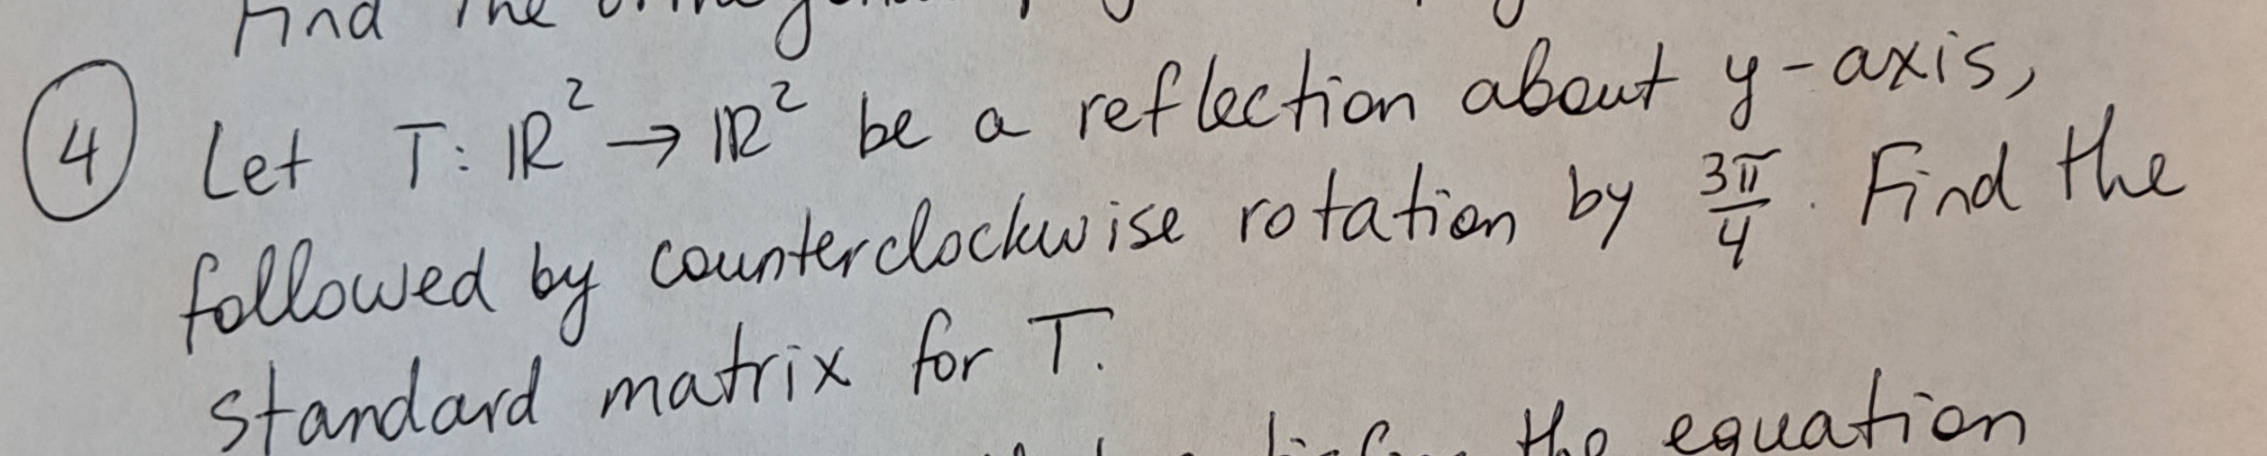 Find the
④ Let T: ℝ² → ℝ² be a reflection about y-axis,
followed by counterclockwise rotation by 3π/4. Find the
standard matrix for T.
the equation